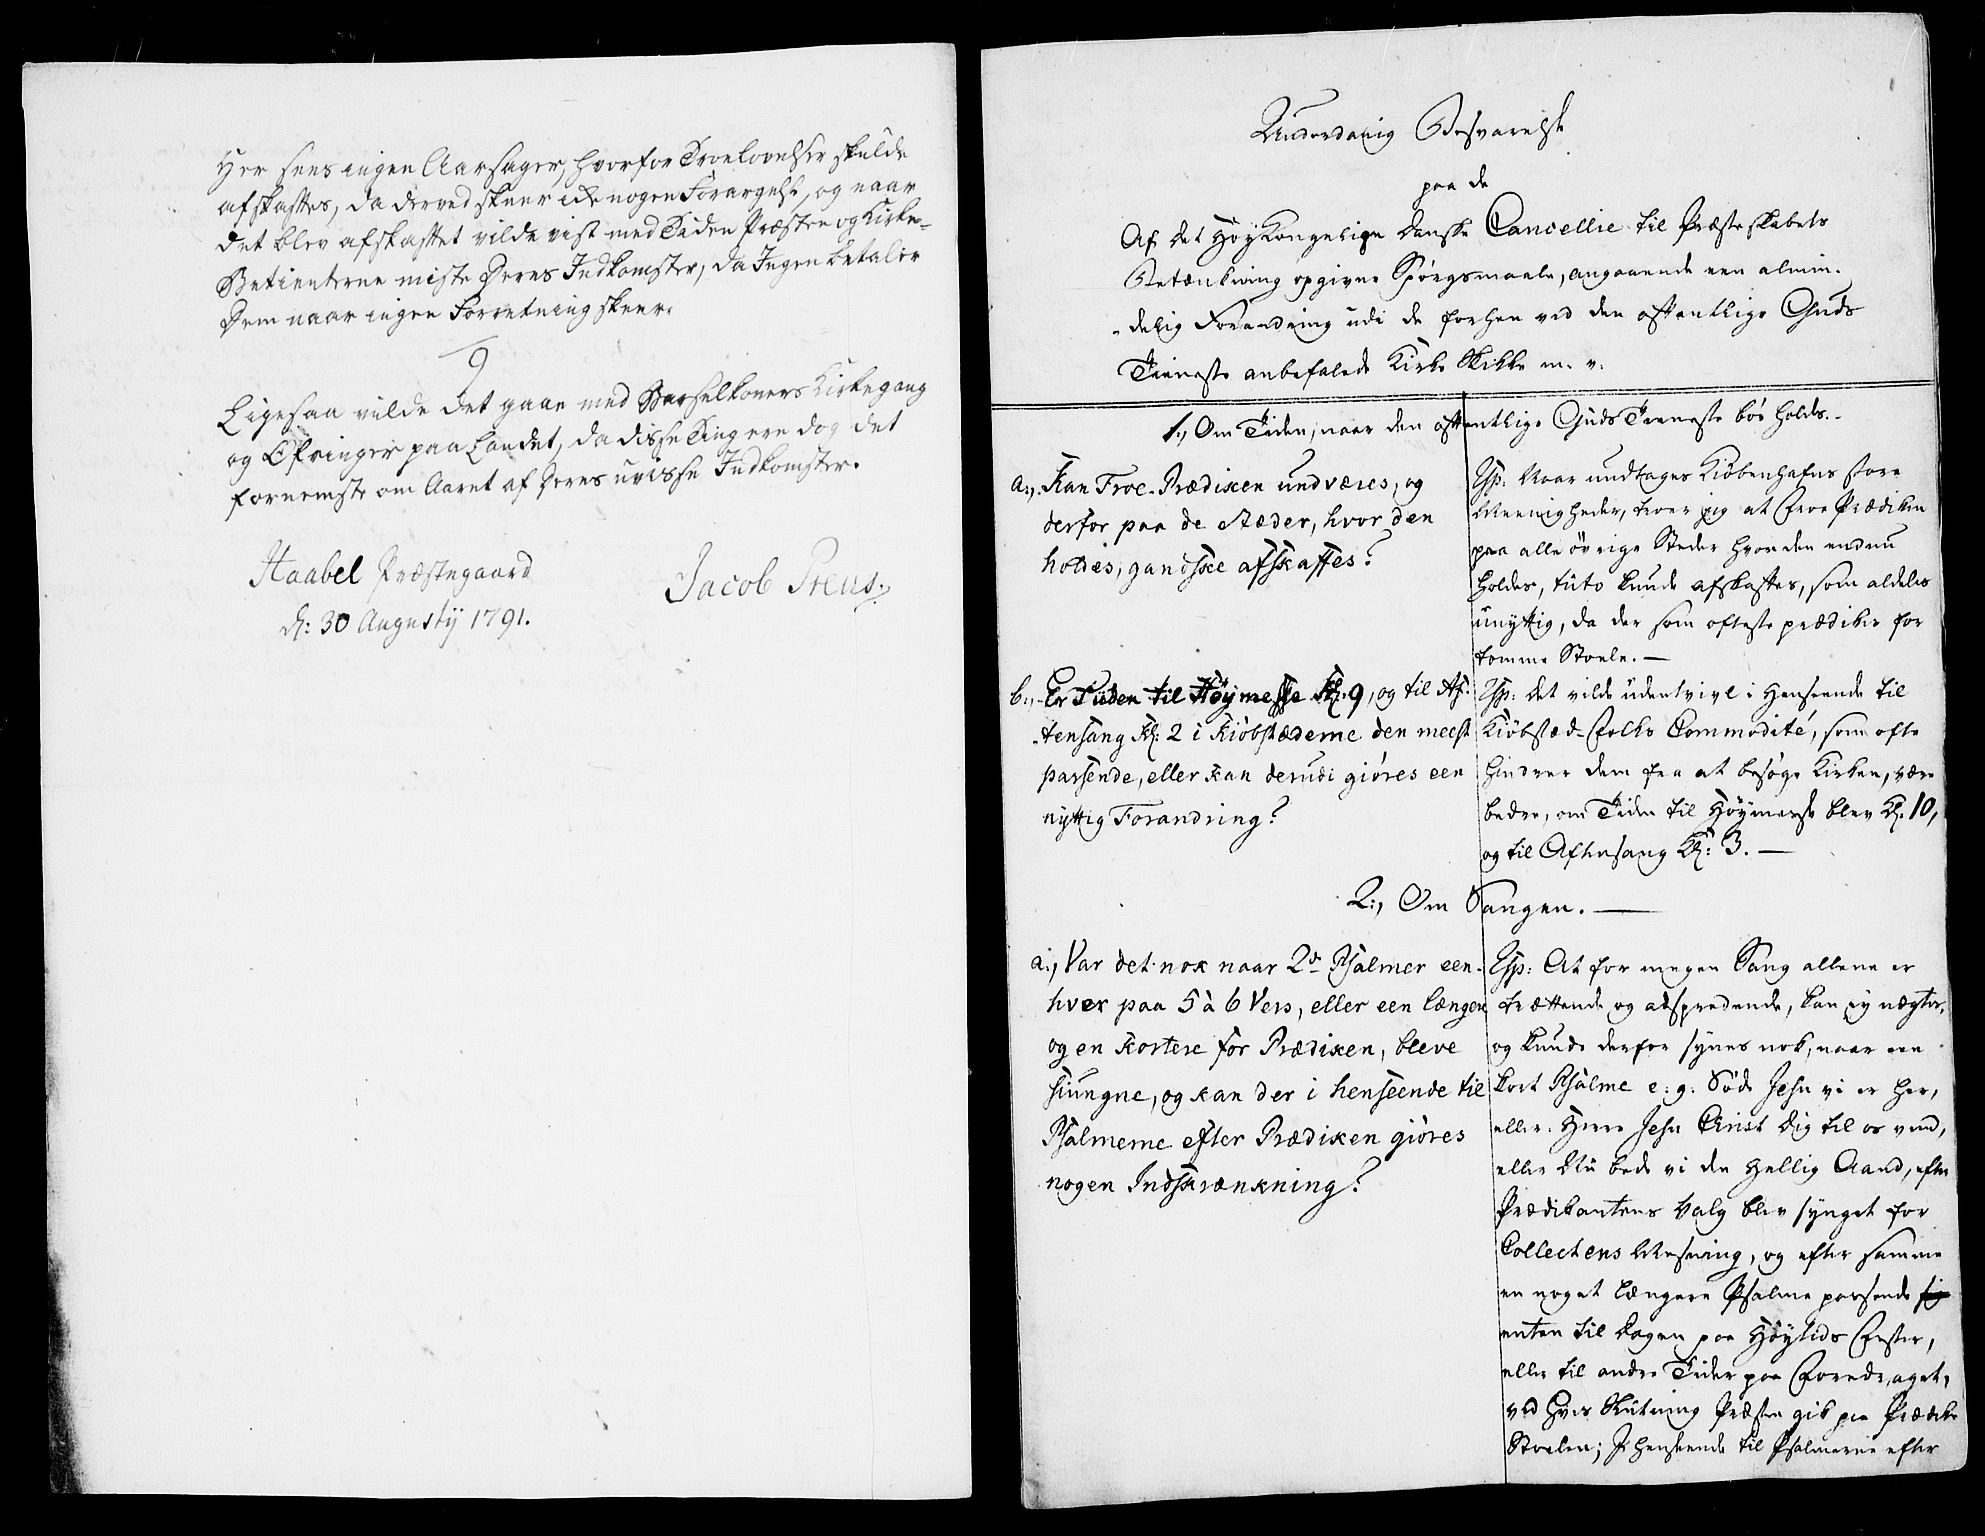 Her sees ingen Aarsager, hvorfor Troelovelser skulde
afskaffes, da derved skeer icke nogen Forargelse, og naar
det blev afskaffet vilde vist med Tiden Præsten og Kirke-
Betienterne miste Deres Indkomster, da Ingen betaler
Dem naar ingen Forretning skeer.
9
Ligesaa vilde det gaae med Barselkoners Kirkegang
og Ofringer paa Landet, da disse Ting ere dog det
fornemste om Aaret af Deres uvisse Indkomster.
Haabel Præstegaard
d: 30 Augustij 1791.
Jacob Preus.
Underdanig Besvarelse
paa de
Af det Høy Kongelige Danske Cancellie til Præsteskabets
Betænkning opgivne Spørgsmaale, angaaende een almin-
-delig Forandring udi de forhen ved den offentlige Guds
Tieneste anbefalede Kirke Skikke m. v.
1., Om Tiden, naar den offentlige Guds Tieneste bør holdes.-
a., Kan Froe-Prædiken undværes, og
derfor paa de Stæder, hvor den
holdes, gandske afskaffes?
Rsp: Naar undtages Kiøbenhafns store
Meenigheder, troer jeg at Froe Prædiken
paa alle øvrige Steder hvor den endnu
holdes, tuto kunde afskaffes, som aldeles
unyttig, da der som ofteste prædikes for
tomme Stoele. —
b., Er Tiden til Høymesse Kl. 9, og til Af-
-tensang Kl: 2 i Kiøbstæderne den meest
passende, eller kan derudi giøres een
nyttig Forandring?
Rsp: det vilde udentvivl i Henseende til
Kiøbstæd-Folks Commodité, som ofte
hindrer dem fra at besøge Kirken, være
bedre, om Tiden til Høymesse blev Kl. 10,
og til Aftensang Kl: 3. —
2., Om Sangen. —
a., Var det nok naar 2de Psalmer een-
hver paa 5 à 6 Vers, eller een længer
og en kortere for Prædiken, bleve
siungne, og kan der i henseende til
Psalmerne efter Prædiken giøres
nogen Indskrænkning?
Rsp: At for megen Sang allene er
trættende og adspredende, kan ey nægtes,
og kunde derfor synes nok, naar een
kort Psalme e: g: Søde Jesu vi er her,
eller: Herre Jesu Christ dig til os vend,
eller Nu bede vi den Hellig Aand, efter
Prædikantens Valg blev synget for
Collectens Messning, og efter samme
en noget længere Psalme passende
enten til Dagen paa Høytids Fester,
eller til andre Tider paa Foredraget,
ved hvis Slutning Præsten gik paa Prædike
Stoelen; I Henseende til Psalmerne efter